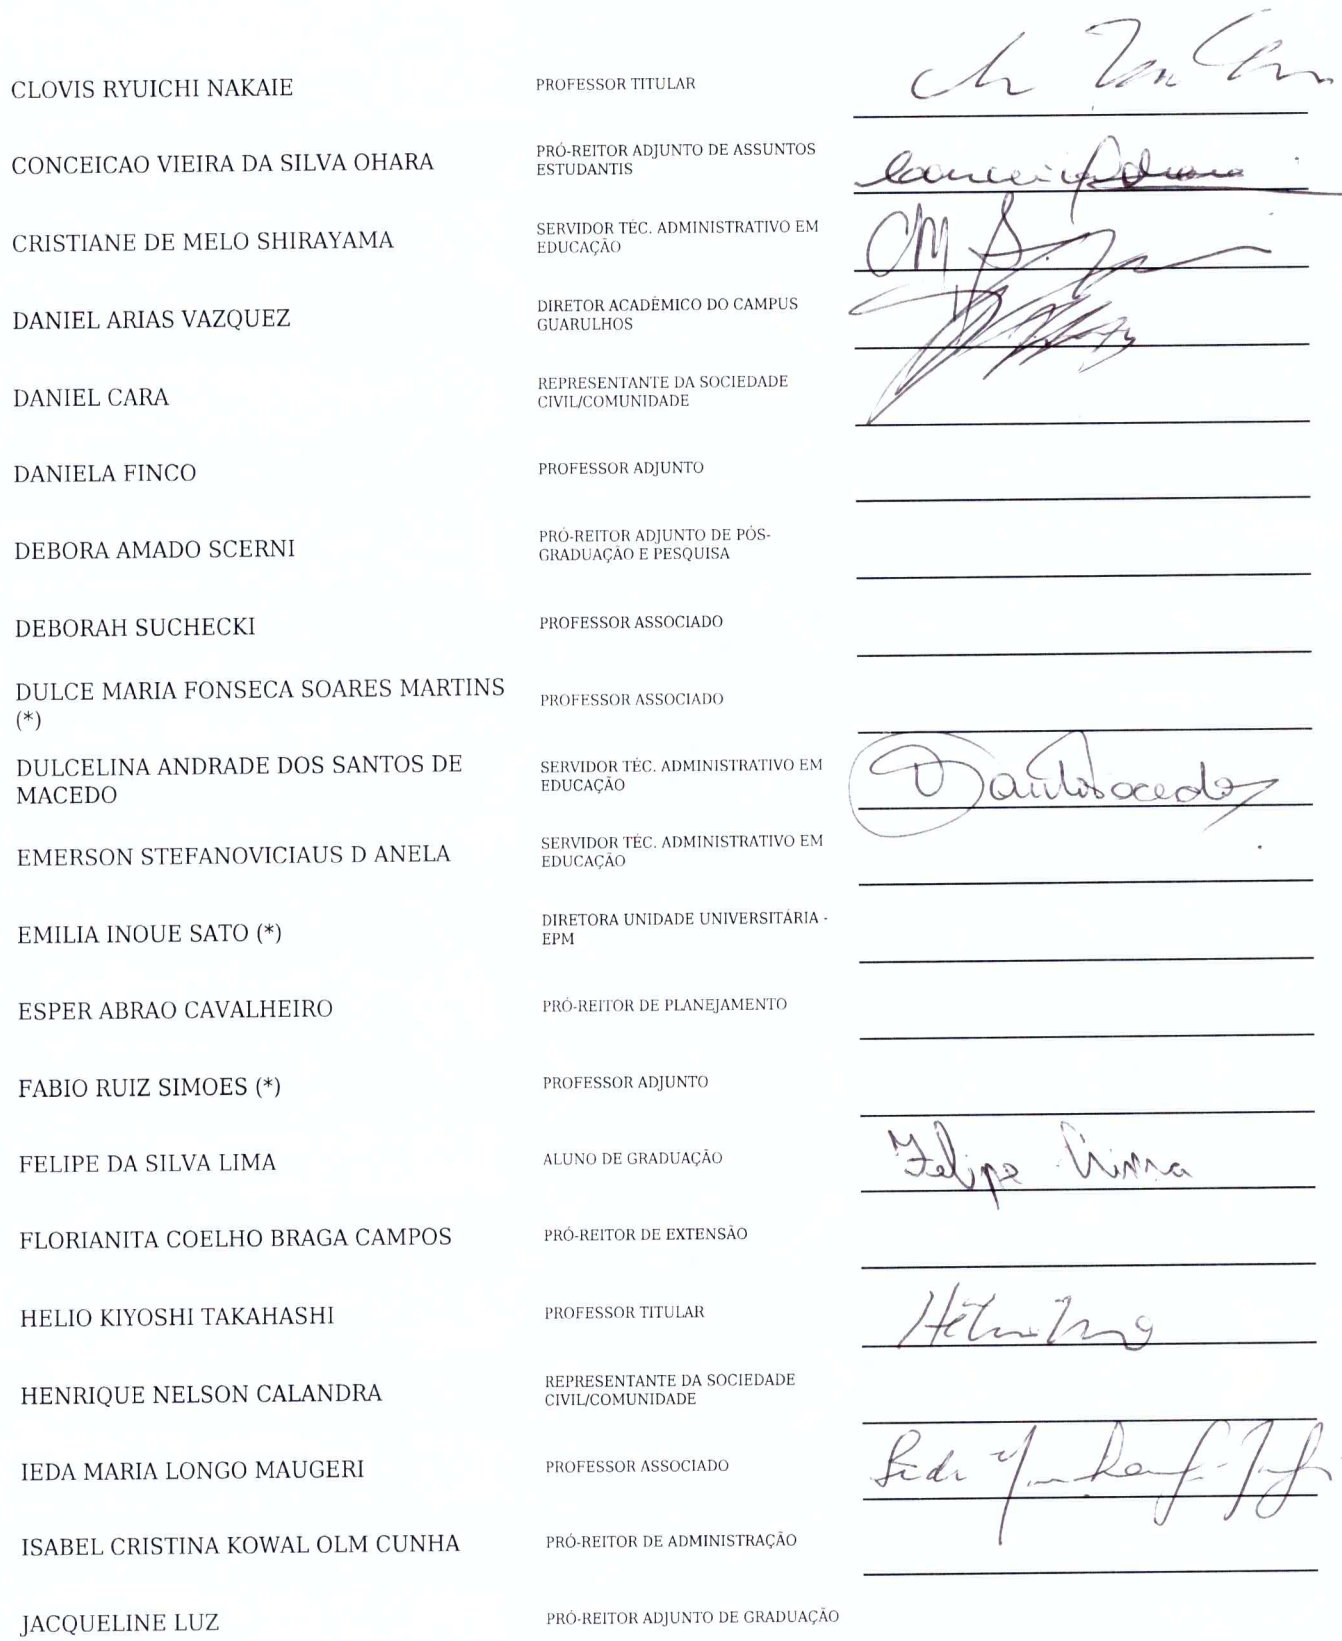 CLOVIS RYUICHI NAKAIE PROFESSOR TITULAR
CONCEICAO VIEIRA DA SILVA OHARA PRÓ-REITOR ADJUNTO DE ASSUNTOS
ESTUDANTIS
CRISTIANE DE MELO SHIRAYAMA SERVIDOR TÉC. ADMINISTRATIVO EM
EDUCAÇÃO
DANIEL ARIAS VAZQUEZ DIRETOR ACADÊMICO DO CAMPUS
GUARULHOS
DANIEL CARA REPRESENTANTE DA SOCIEDADE
CIVIL/COMUNIDADE
DANIELA FINCO PROFESSOR ADJUNTO
DEBORA AMADO SCERNI PRÓ-REITOR ADJUNTO DE PÓS-
GRADUAÇÃO E PESQUISA
DEBORAH SUCHECKI PROFESSOR ASSOCIADO
DULCE MARIA FONSECA SOARES MARTINS PROFESSOR ASSOCIADO
(*)
DULCELINA ANDRADE DOS SANTOS DE SERVIDOR TÉC. ADMINISTRATIVO EM
MACEDO EDUCAÇÃO
EMERSON STEFANOVICIAUS D ANELA SERVIDOR TÉC. ADMINISTRATIVO EM
EDUCAÇÃO
EMILIA INOUE SATO (*) DIRETORA UNIDADE UNIVERSITÁRIA -
EPM
ESPER ABRAO CAVALHEIRO PRÓ-REITOR DE PLANEJAMENTO
FABIO RUIZ SIMOES (*) PROFESSOR ADJUNTO
FELIPE DA SILVA LIMA ALUNO DE GRADUAÇÃO Felipe Lima
FLORIANITA COELHO BRAGA CAMPOS PRÓ-REITOR DE EXTENSÃO
HELIO KIYOSHI TAKAHASHI PROFESSOR TITULAR
HENRIQUE NELSON CALANDRA REPRESENTANTE DA SOCIEDADE
CIVIL/COMUNIDADE
IEDA MARIA LONGO MAUGERI PROFESSOR ASSOCIADO
ISABEL CRISTINA KOWAL OLM CUNHA PRÓ-REITOR DE ADMINISTRAÇÃO
JACQUELINE LUZ PRÓ-REITOR ADJUNTO DE GRADUAÇÃO